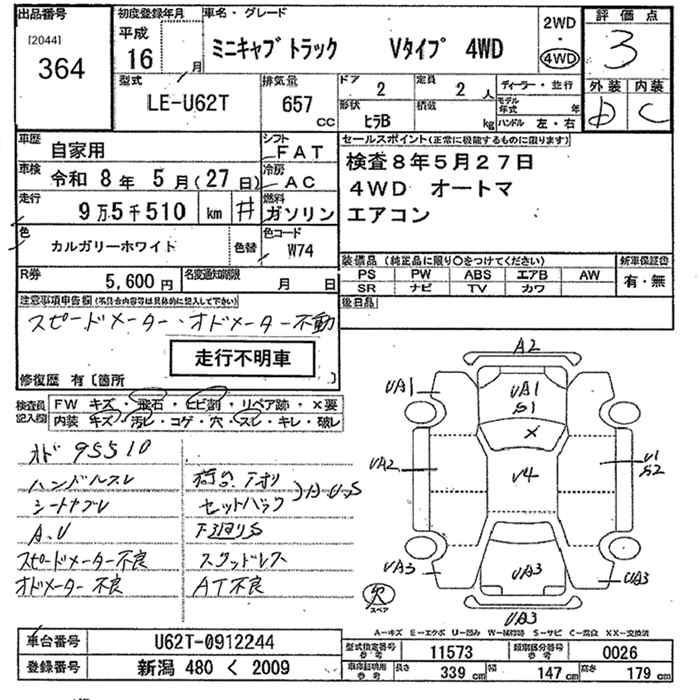 出品番号
[2044]
364
初度登録年月
平成
16 月
車名・グレード
ミニキャブトラック Vタイプ 4WD
2WD
・
4WD
評価点
3
外装 内装
D C
型式
LE-U62T
排気量
657 CC
ドア
2
定員
2 人
形状
ヒラB
積載
kg
ディーラー・並行
モデル年式 年
ハンドル 左・右
車歴
自家用
シフト
FAT
車検
令和 8年 5月(27日)
冷房
AC
走行
9万5千510 km #
燃料
ガソリン
色
カルガリーホワイト
色替
色コード
W74
R券
5,600円
名変通知期限
月 日
セールスポイント(正常に機能するものに限ります)
検査8年5月27日
4WD オートマ
エアコン
装備品 (純正品に限り○をつけてください)
PS PW ABS エアB AW
SR ナビ TV カワ
新車保証書
有・無
後日品
注意事項申告欄(不具合内容等は具体的に記入して下さい)
スピードメーター・オドメーター不動
走行不明車
修復歴 有〔箇所 〕
検査員
記入欄
FW キズ・飛石・ヒビ割・リペア跡・X要
内装 キズ・汚レ・コゲ・穴・スレ・キレ・破レ
オド 95510
ハンドルスレ
シートヤブレ
A.U
スピードメーター不良
オドメーター不良
荷台 下オリ
セットバック
)A U S
下廻りS
スタッドレス
AT不良
A2
UA1
UA1
S1
X
UA2
V4
U1
S2
UA3
UA3
UA3
UA3
欠
スペア
A-キズ E-エクボ U-凹み W-補修跡 S-サビ C-腐食 XX-交換済
車台番号
U62T-0912244
登録番号
新潟 480 く 2009
型式指定番号
参考
11573
類別区分番号
参考
0026
車庫証明用
参考
長さ
339 cm
幅
147 cm
高さ
179 cm